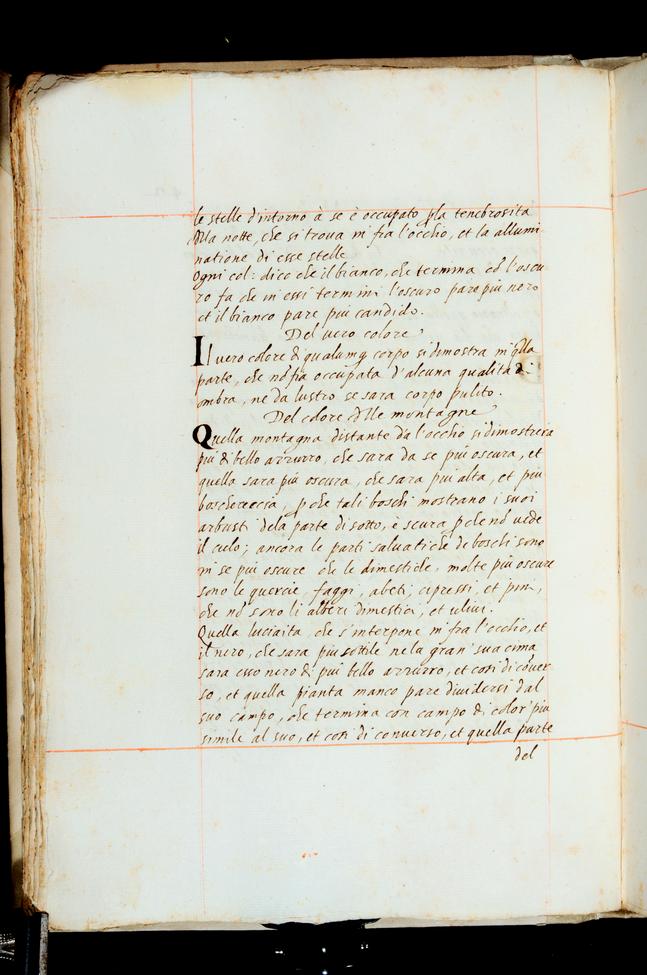 le stelle d'intorno à se è occupato p la tenebrosita
della notte, che si trova in fra l'occhio, et la allumi
natione di esse stelle
Ogni col: dico che il bianco, che termina cō l'oscu
ro fa che in essi termini l'oscuro pare più nero
et il bianco pare più candido.
Del vero colore
Il vero colore di qualunq corpo si dimostra in qlla
parte, che nō fia occupata d'alcuna qualita di
ombra, ne da lustro se sara corpo pulito.
Del colore delle montagne
Quella montagna distante da l'occhio si dimostrera
più di bello azzurro, che sara da se più oscura, et
quella sara più oscura, che sara più alta, et più
boschereccia, p che tali boschi mostrano i suoi
arbusti dela parte di sotto, è scura p che nō vede
il cielo; ancora le parti salvatiche de boschi sono
in se più oscure che le dimestiche, molte più oscure
sono le quercie, faggi, abeti, cipressi, et pini,
che nō sono li alberi dimestici, et ulivi.
Quella luciaita, che s'interpone in fra l'occhio, et
il nero, che sara più sottile nela gran' sua cima
sara esso nero di più bello azzurro, et cosi di conver
so, et quella pianta manco pare dividersi dal
suo campo, che termina con campo di color' più
simile al suo, et cosi di converso, et quella parte
del